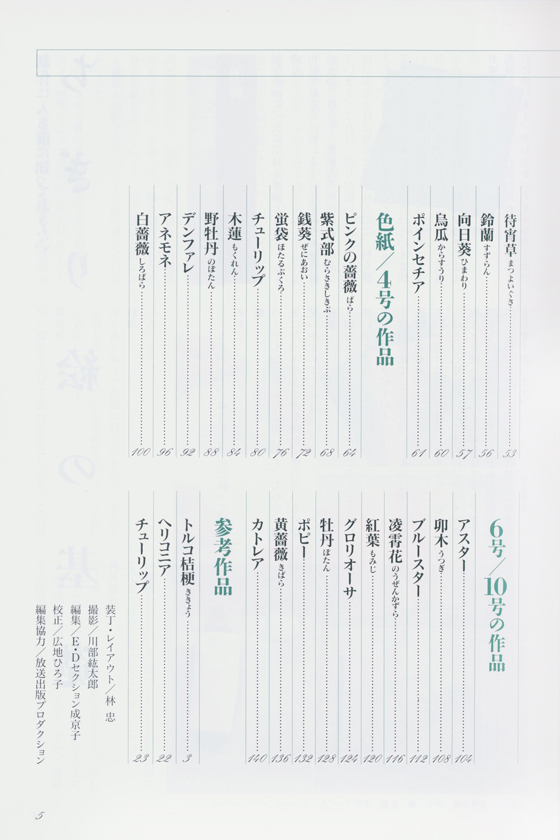 待宵草 まつよいぐさ 53
鈴蘭 すずらん 56
向日葵 ひまわり 57
烏瓜 からすうり 60
ポインセチア 61
色紙/4号の作品
ピンクの薔薇 ばら 64
紫式部 むらさきしきぶ 68
銭葵 ぜにあおい 72
蛍袋 ほたるぶくろ 76
チューリップ 80
木蓮 もくれん 84
野牡丹 のぼたん 88
デンファレ 92
アネモネ 96
白薔薇 しろばら 100
6号/10号の作品
アスター 104
卯木 うつぎ 108
ブルースター 112
凌霄花 のうぜんかずら 116
紅葉 もみじ 120
グロリオーサ 124
牡丹 ぼたん 128
ポピー 132
黄薔薇 きばら 136
カトレア 140
参考作品
トルコ桔梗 ききょう 3
ヘリコニア 22
チューリップ 23
装丁・レイアウト/林 忠
撮影/川部紘太郎
編集/E・Dセクション成京子
校正/広地ひろ子
編集協力/放送出版プロダクション
5